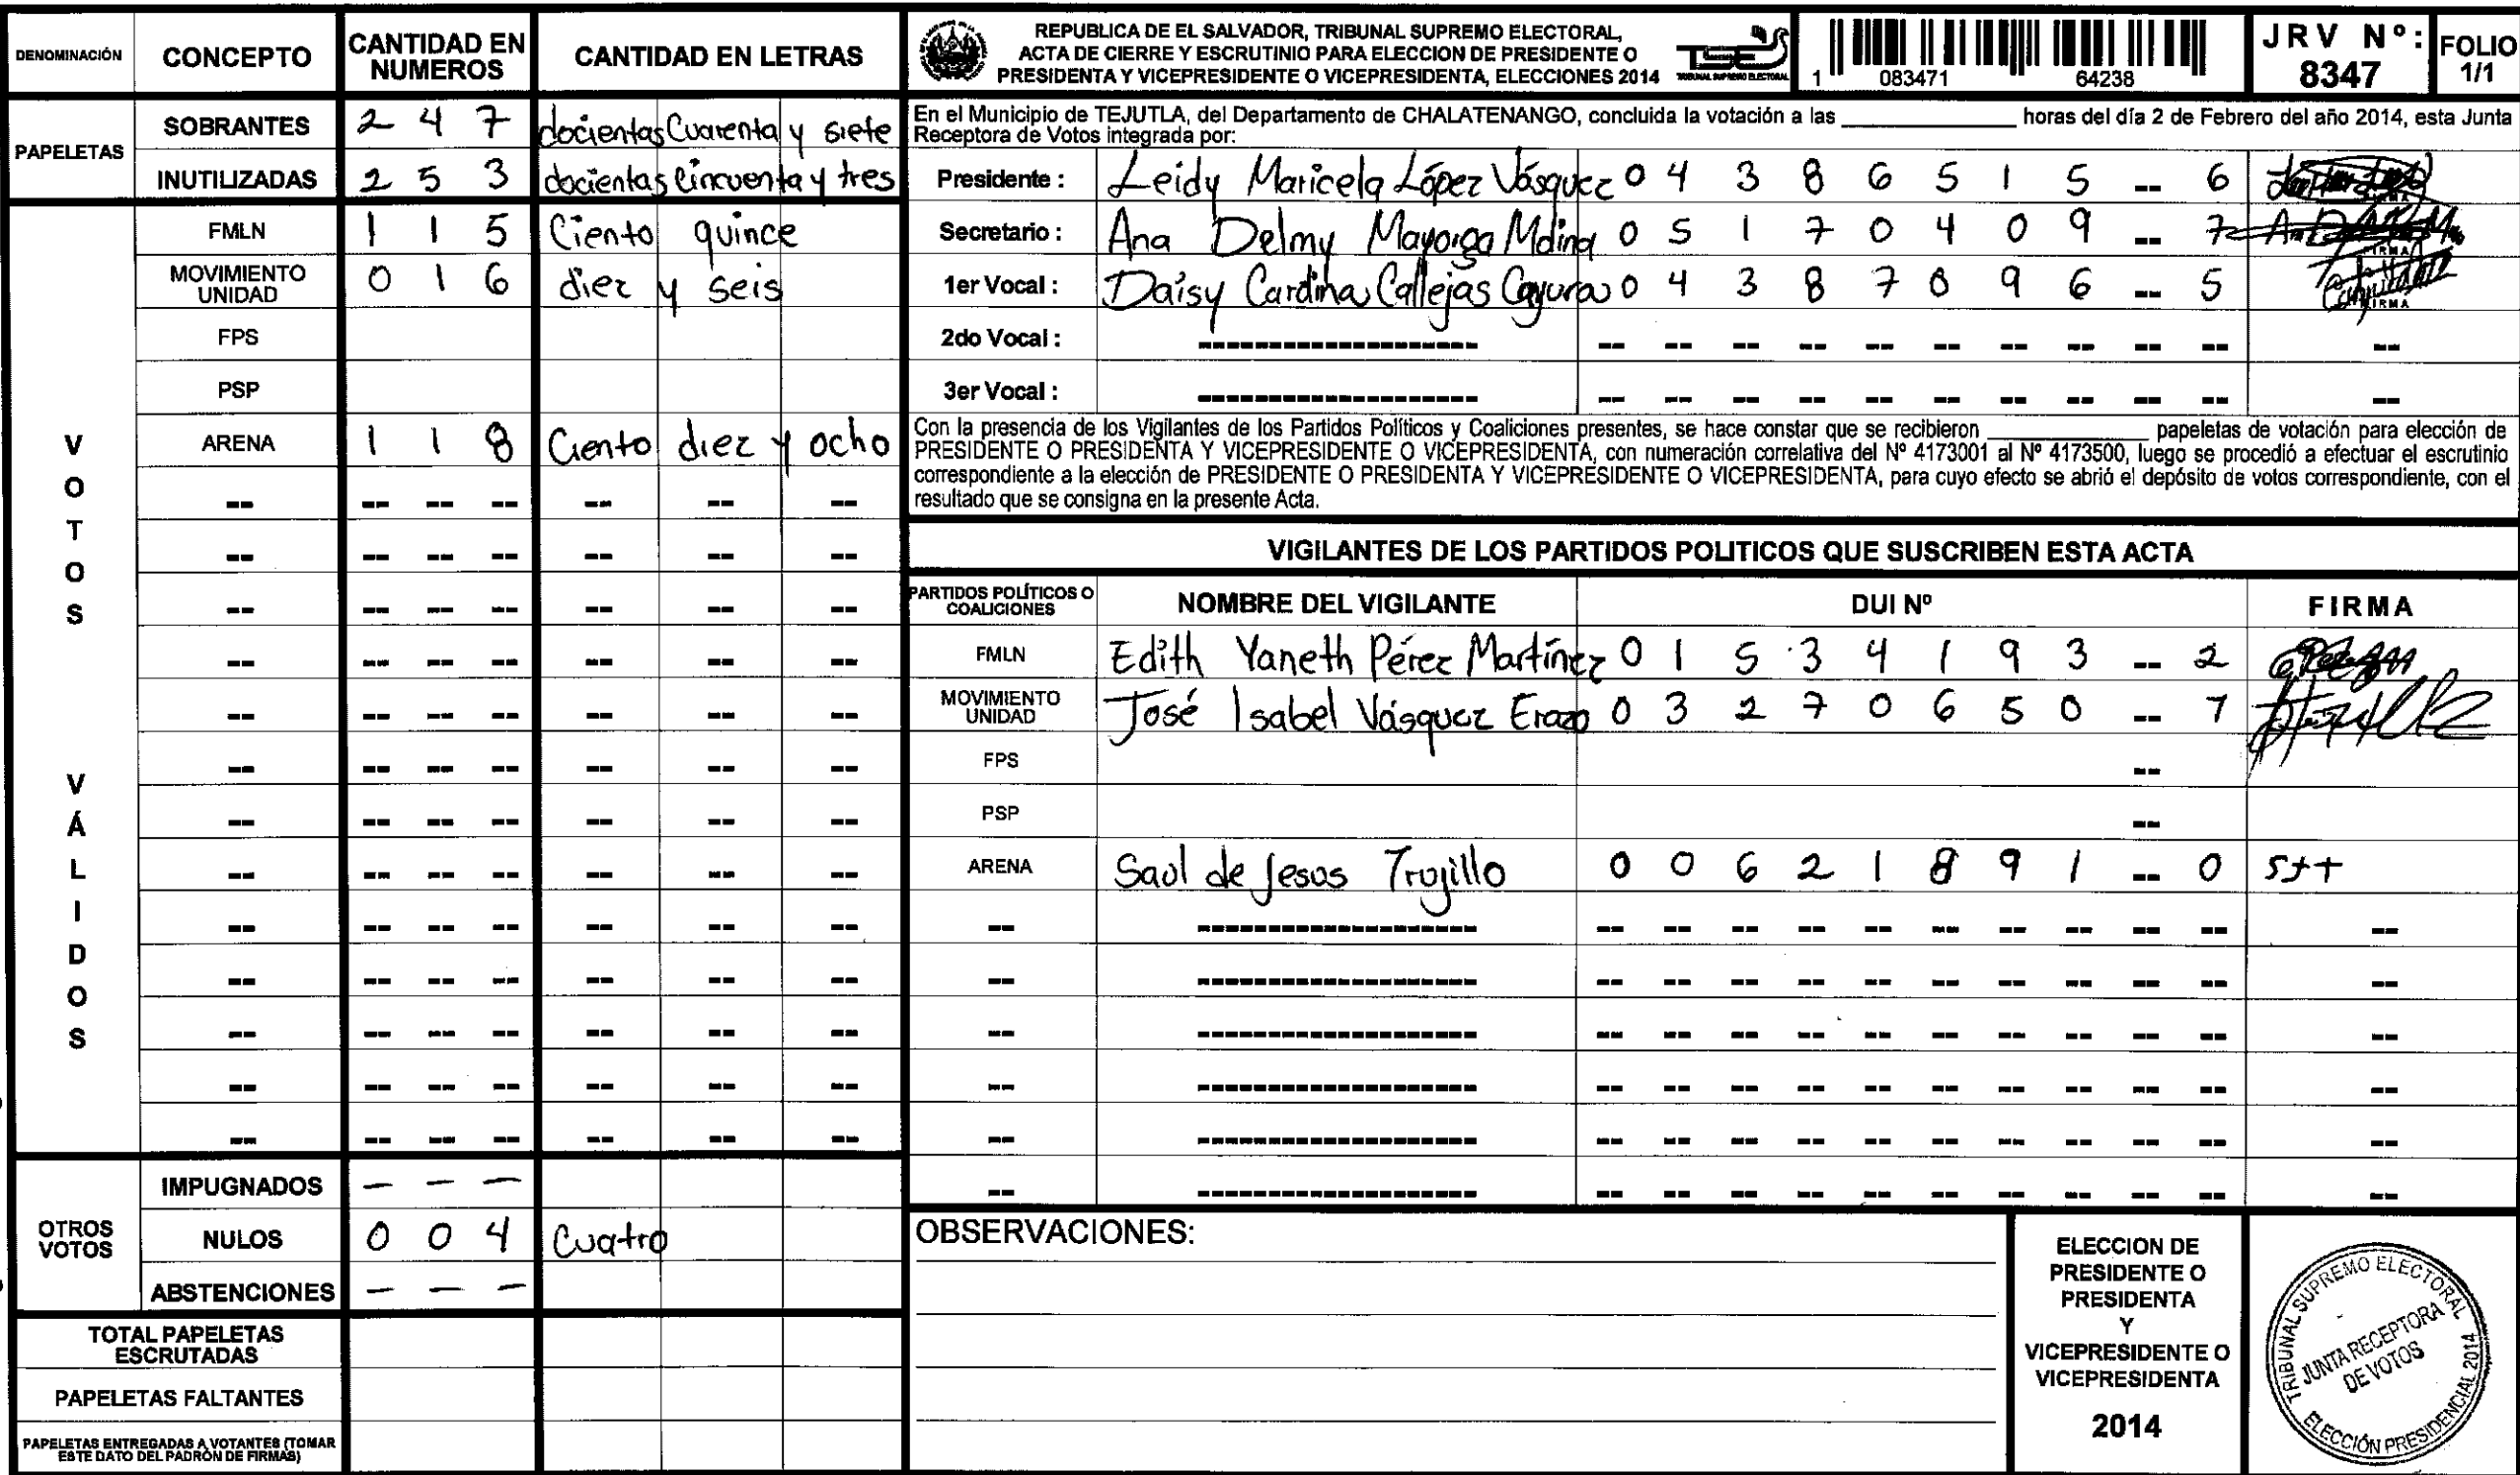 DENOMINACIÓN CONCEPTO CANTIDAD EN NUMEROS CANTIDAD EN LETRAS
PAPELETAS
SOBRANTES 2 4 7 docientas Cuarenta y siete
INUTILIZADAS 2 5 3 docientas Cincuenta y tres
VOTOS VÁLIDOS
FMLN 1 1 5 Ciento quince
MOVIMIENTO UNIDAD 0 1 6 diez y seis
FPS
PSP
ARENA 1 1 8 Ciento diez y ocho
-- -- -- -- -- -- --
-- -- -- -- -- -- --
-- -- -- -- -- -- --
-- -- -- -- -- -- --
-- -- -- -- -- -- --
-- -- -- -- -- -- --
-- -- -- -- -- -- --
-- -- -- -- -- -- --
-- -- -- -- -- -- --
-- -- -- -- -- -- --
-- -- -- -- -- -- --
-- -- -- -- -- -- --
-- -- -- -- -- -- --
OTROS VOTOS
IMPUGNADOS — — —
NULOS 0 0 4 Cuatro
ABSTENCIONES — — —
TOTAL PAPELETAS ESCRUTADAS
PAPELETAS FALTANTES
PAPELETAS ENTREGADAS A VOTANTES (TOMAR
ESTE DATO DEL PADRÓN DE FIRMAS)
REPUBLICA DE EL SALVADOR, TRIBUNAL SUPREMO ELECTORAL,
ACTA DE CIERRE Y ESCRUTINIO PARA ELECCION DE PRESIDENTE O
PRESIDENTA Y VICEPRESIDENTE O VICEPRESIDENTA, ELECCIONES 2014
TSE
TRIBUNAL SUPREMO ELECTORAL
1 083471 64238
JRV Nº: 8347
FOLIO 1/1
En el Municipio de TEJUTLA, del Departamento de CHALATENANGO, concluida la votación a las ____________ horas del día 2 de Febrero del año 2014, esta Junta
Receptora de Votos integrada por:
Presidente : Leidy Maricela López Vásquez 0 4 3 8 6 5 1 5 -- 6
Secretario : Ana Delmy Mayorga Mdina 0 5 1 7 0 4 0 9 -- 7 FIRMA
1er Vocal : Daisy Callejas 0 4 3 8 7 0 9 6 -- 5 FIRMA
2do Vocal : -------------------- -- -- -- -- -- -- -- -- -- -- --
3er Vocal : -------------------- -- -- -- -- -- -- -- -- -- -- --
Con la presencia de los Vigilantes de los Partidos Políticos y Coaliciones presentes, se hace constar que se recibieron ____________ papeletas de votación para elección de
PRESIDENTE O PRESIDENTA Y VICEPRESIDENTE O VICEPRESIDENTA, con numeración correlativa del Nº 4173001 al Nº 4173500, luego se procedió a efectuar el escrutinio
correspondiente a la elección de PRESIDENTE O PRESIDENTA Y VICEPRESIDENTE O VICEPRESIDENTA, para cuyo efecto se abrió el depósito de votos correspondiente, con el
resultado que se consigna en la presente Acta.
VIGILANTES DE LOS PARTIDOS POLITICOS QUE SUSCRIBEN ESTA ACTA
PARTIDOS POLÍTICOS O COALICIONES NOMBRE DEL VIGILANTE DUI Nº FIRMA
FMLN Edith Yaneth Pérez Martínez 0 1 5 3 4 1 9 3 -- 2
MOVIMIENTO UNIDAD José Isabel Vásquez Erazo 0 3 2 7 0 6 5 0 -- 7
FPS --
PSP --
ARENA Saul de Jesus Trujillo 0 0 6 2 1 8 9 1 -- 0
-- -------------------- -- -- -- -- -- -- -- -- -- -- --
-- -------------------- -- -- -- -- -- -- -- -- -- -- --
-- -------------------- -- -- -- -- -- -- -- -- -- -- --
-- -------------------- -- -- -- -- -- -- -- -- -- -- --
-- -------------------- -- -- -- -- -- -- -- -- -- -- --
-- -------------------- -- -- -- -- -- -- -- -- -- -- --
OBSERVACIONES:
ELECCION DE
PRESIDENTE O
PRESIDENTA
Y
VICEPRESIDENTE O
VICEPRESIDENTA
2014
TRIBUNAL SUPREMO ELECTORAL
JUNTA RECEPTORA
DE VOTOS
ELECCIÓN PRESIDENCIAL 2014